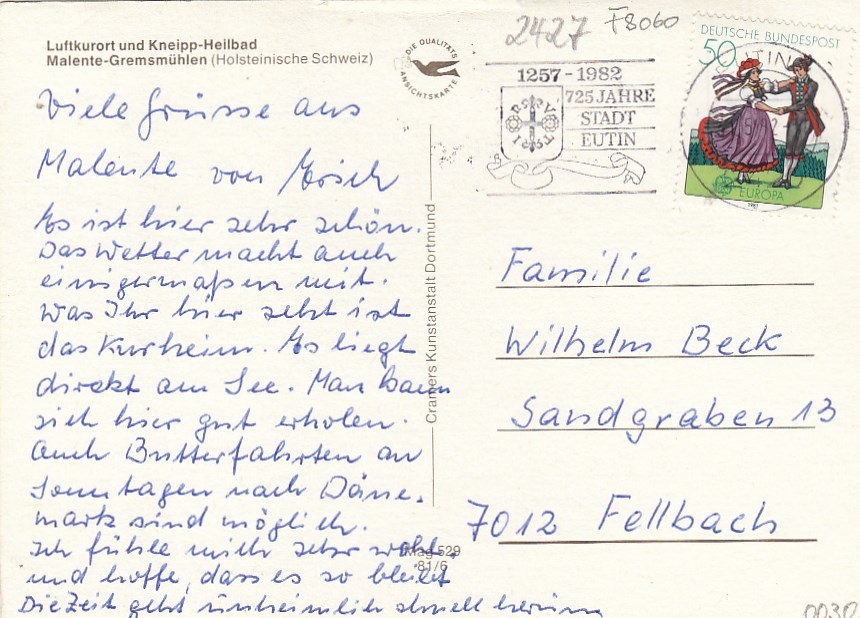 2427 F8060
Luftkurort und Kneipp-Heilbad
Malente-Gremsmühlen (Holsteinische Schweiz)
DIE QUALITÄTS
ANSICHTSKARTE
1257-1982
725 JAHRE
STADT
EUTIN
DEUTSCHE BUNDESPOST
50
EUROPA
Viele Grüsse aus
Malente von Erich
Es ist hier sehr schön.
Das Wetter macht auch
einigermaßen mit.
Was Ihr hier seht ist
das Kurheim. Es liegt
direkt am See. Man kann
sich hier gut erholen.
Auch Butterfahrten an
Sonntagen nach Däne-
mark sind möglich.
Ich fühle mich sehr wohl
und hoffe, dass es so bleibt
Die Zeit geht unheimlich schnell herum
Cramers Kunstanstalt Dortmund
Mag 529
81/6
Familie
Wilhelm Beck
Sandgraben 13
7012 Fellbach
0030